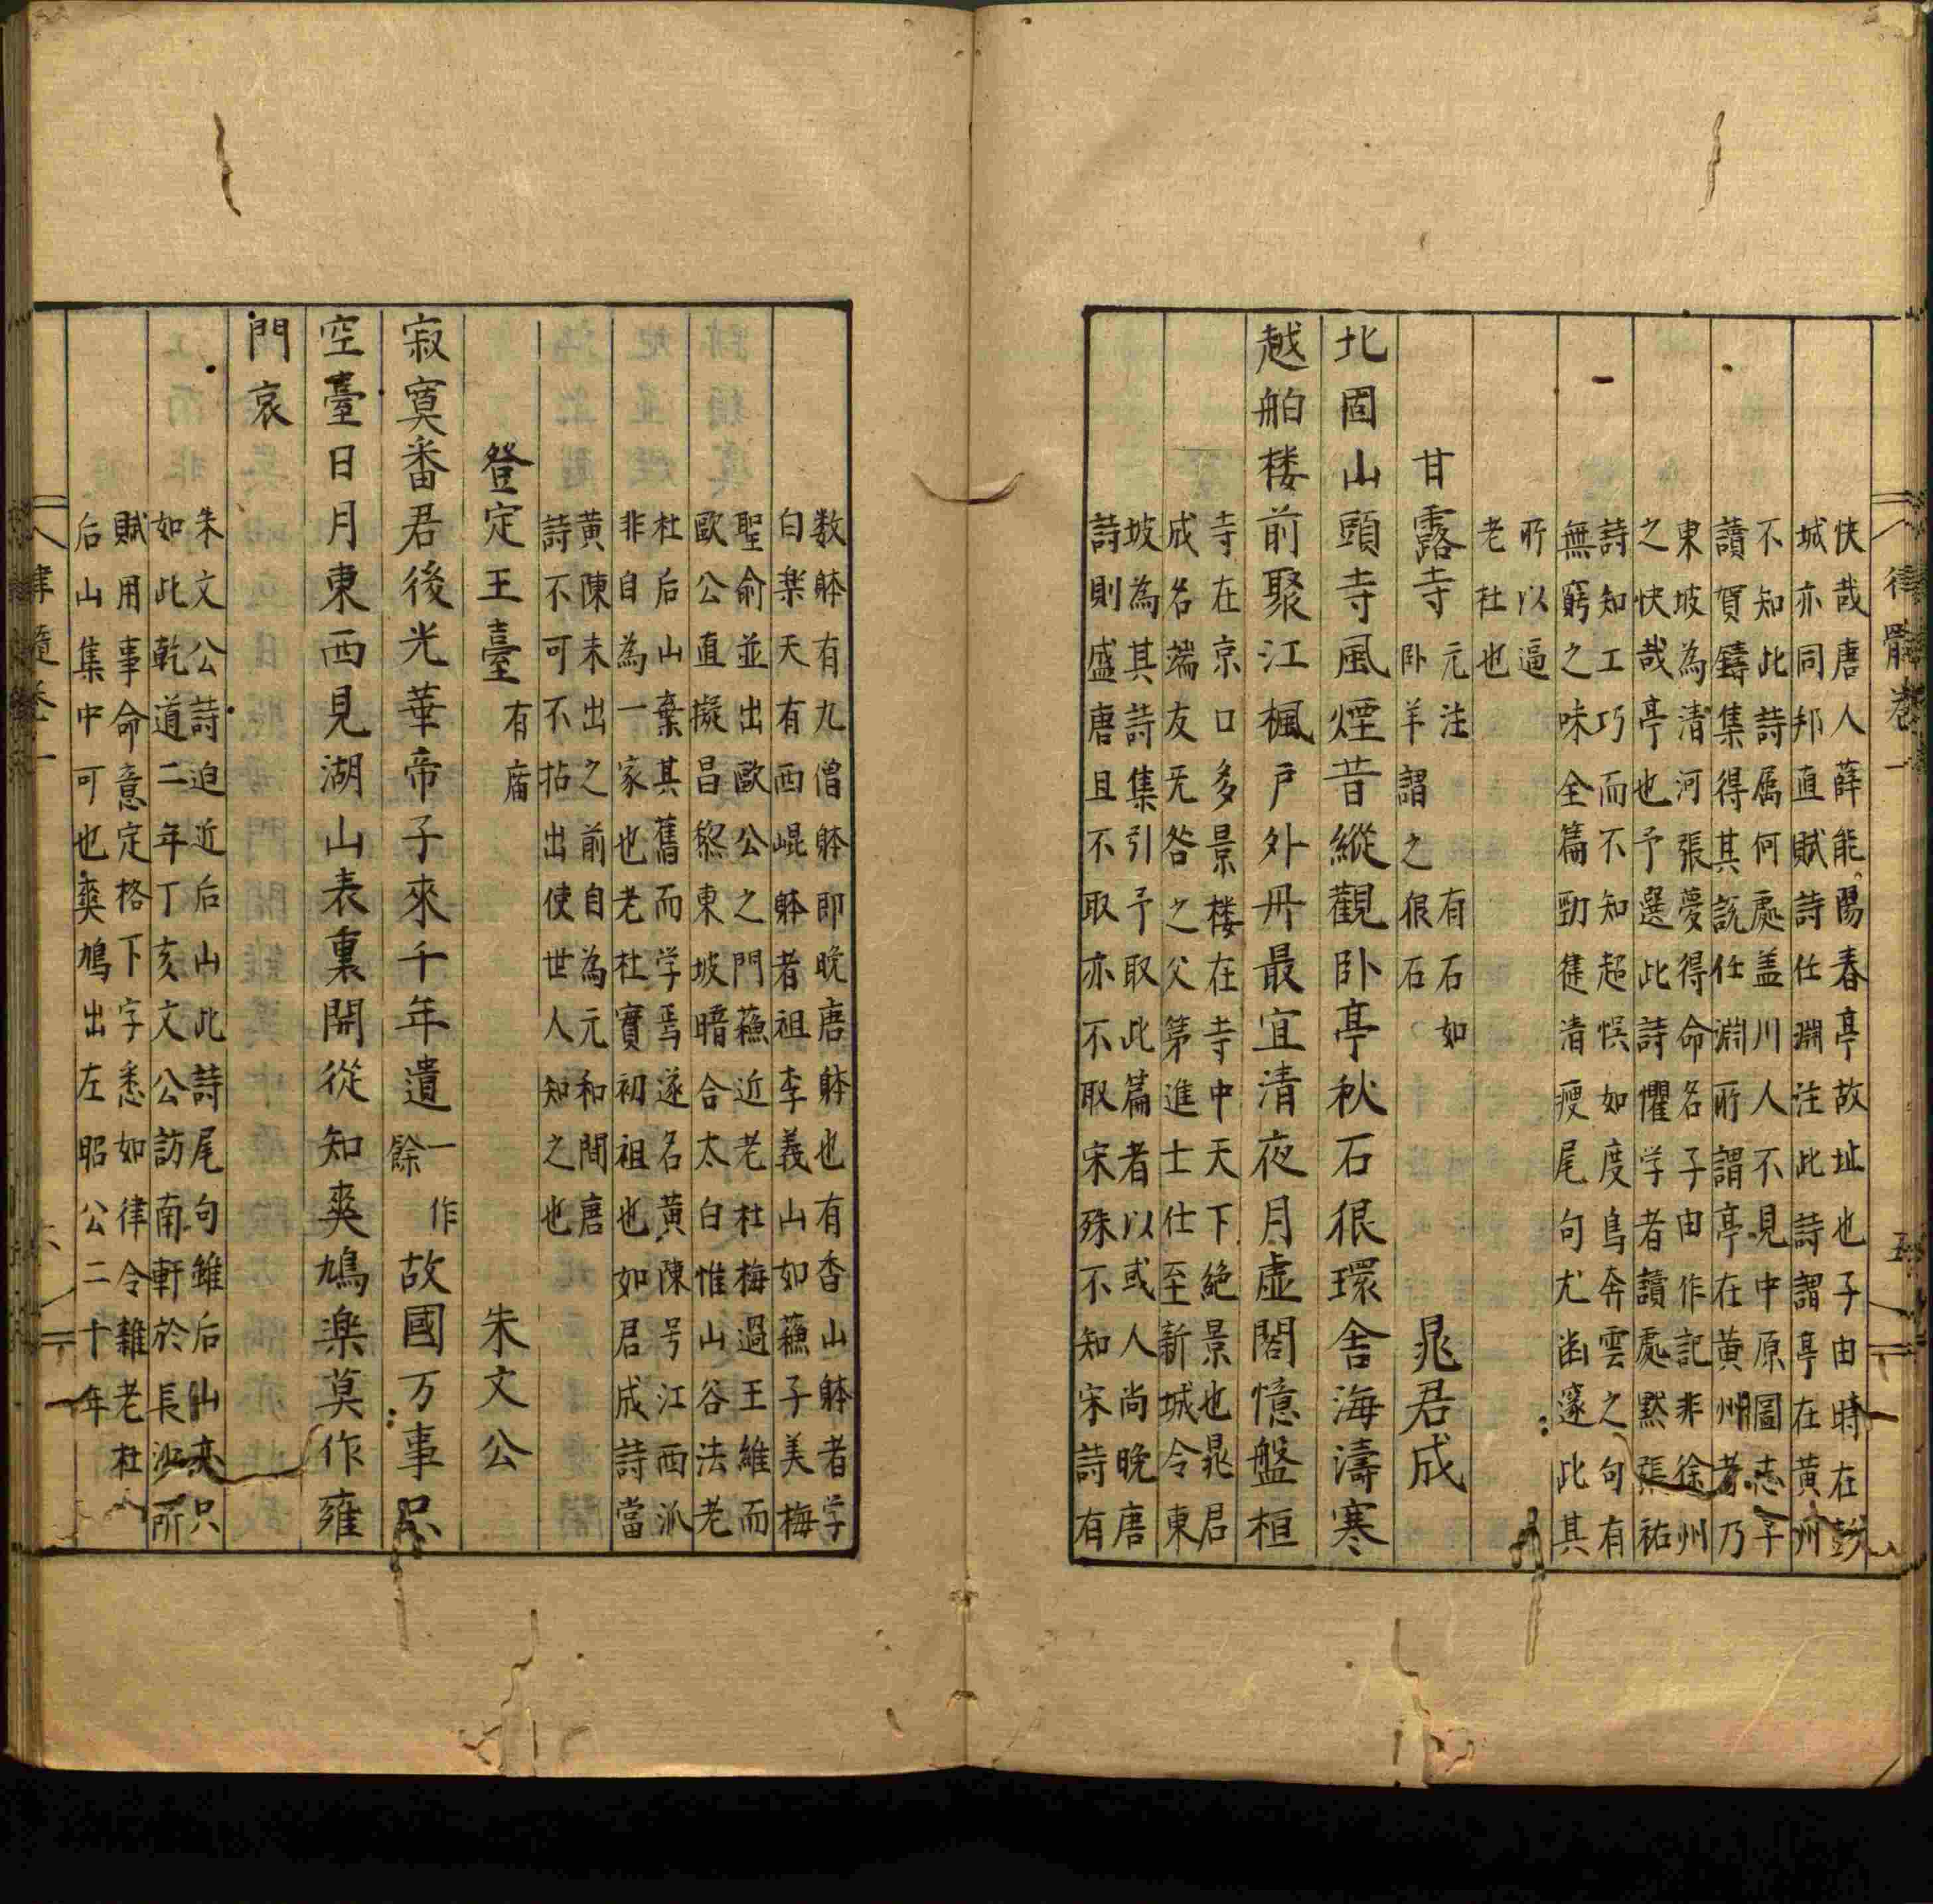 律髓卷一
五
快哉唐人薛能陽春亭故址也子由時在彭
城亦同邦直賦詩仕淵注此詩謂亭在黄州
不知此詩属何處盖川人不見中原圖志予
讀賀鑄集得其說仕淵所謂亭在黄州者乃
東坡為清河張夢得命名子由作記非徐州
之快哉亭也予選此詩懼学者讀處黙張祐
詩知工巧而不知超悮如度鳥奔雲之句有
無窮之味全篇勁健清瘦尾句尤幽邃此其
所以逼
老杜也
甘露寺 元注有石如
卧羊謂之很石 晁君成
北固山頭寺風煙昔縱觀卧亭秋石很環舍海濤寒
越舶楼前聚江楓戸外丹最宜清夜月虚閣憶盤桓
寺在京口多景楼在寺中天下絶景也晁君
成名端友无咎之父第進士仕至新城令東
坡為其詩集引予取此篇者以或人尚晚唐
詩則盛唐且不取亦不取宋殊不知宋詩有
数躰有九僧躰即晚唐躰也有香山躰者学
白楽天有西崐躰者祖李義山如蘓子美梅
聖俞並出歐公之門蘓近老杜梅過王維而
歐公直擬昌黎東坡暗合太白惟山谷法老
杜后山棄其舊而学焉遂名黄陳号江西派
非自為一家也老杜實初祖也如君成詩當
黄陳未出之前自為元和間唐
詩不可不拈出使世人知之也
登定王臺 有庙 朱文公
寂寞番君後光華帝子來千年遺 一作
餘 故國万事只
空臺日月東西見湖山表裏開從知爽鳩楽莫作雍
門哀
朱文公詩迫近后山此詩尾句雖后山亦只
如此乾道二年丁亥文公訪南軒於長沙所
賦用事命意定格下字悉如律令雜老杜
后山集中可也爽鳩出左昭公二十年
律髓卷一
六